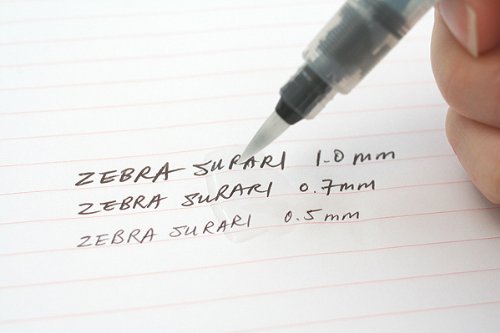 ZEBRA SURARI 1.0 mm
ZEBRA SURARI 0.7mm
ZEBRA SURARI 0.5mm